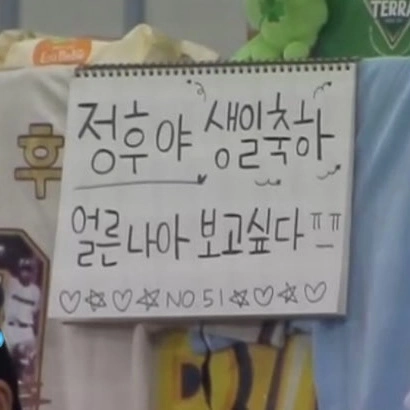 TERRA
후
정후야 생일축하
얼른 나아 보고싶다 ㅠㅠ
♡☆♡☆ NO 51 ☆♡☆♡